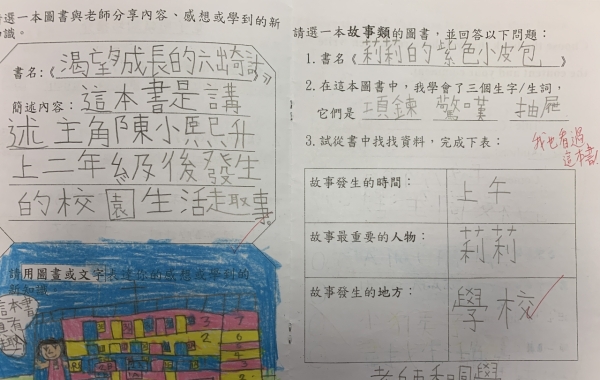 請選一本圖書與老師分享內容、感想或學到的新
知識。
書名:《渴望成長的六出奇計》
簡述內容：這本書是講
述主角陳小熙升
上二年級後發生
的校園生活趣事
請用圖畫或文字表達你的感想或學到的
新知識
這本書
真有
趣
3
2
7
6
4
3
2
請選一本故事類的圖書，並回答以下問題：
1. 書名《莉莉的紫色小皮包》
2. 在這本圖書中，我學會了三個生字/生詞，
它們是 項鍊 驚嘆 抽屜
3. 試從書中找找資料，完成下表：
我也看過
這本書!
故事發生的時間： 上午
故事最重要的人物： 莉莉
故事發生的地方： 學校
老師和同學